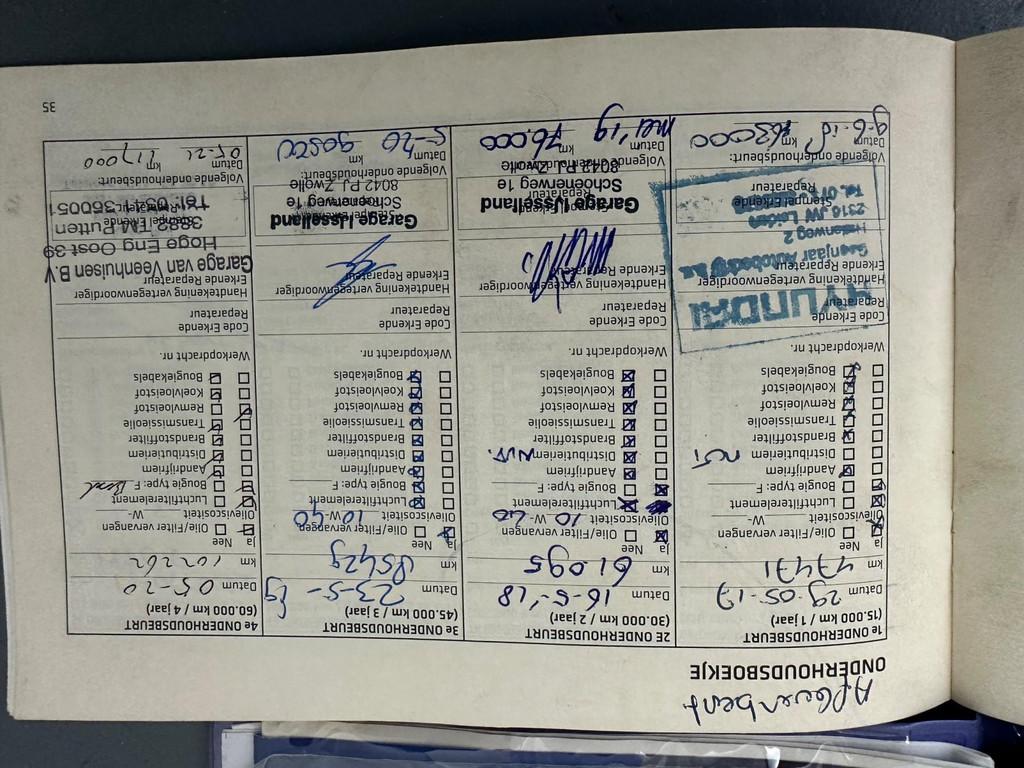 Afleverbeurt
ONDERHOUDSBOEKJE
1e ONDERHOUDSBEURT
(15.000 km / 1 jaar)
Datum 29-05-17
km 47471
Ja Nee
Olie/Filter vervangen
Olieviscositeit W-
Luchtfilterelement
Bougie type: F
Aandrijfriem
Distributieriem
Brandstoffilter
Transmissieolie
Remvloeistof
Koelvloeistof
Bougiekabels
Werkopdracht nr.
Code Erkende
Reparateur
HYUNDAI
Handtekening vertegenwoordiger
Erkende Reparateur
2316 JW Leiden
Stempel Erkende
Reparateur
Volgende onderhoudsbeurt:
Datum km
9-6-18 63000
2E ONDERHOUDSBEURT
(30.000 km / 2 jaar)
Datum 16-5-'18
km 61.095
Ja Nee
Olie/Filter vervangen
Olieviscositeit 10-W-40
Luchtfilterelement
Bougie type: F
Aandrijfriem
Distributieriem
Brandstoffilter
Transmissieolie
Remvloeistof
Koelvloeistof
Bougiekabels
Werkopdracht nr.
Code Erkende
Reparateur
Handtekening vertegenwoordiger
Erkende Reparateur
Garage IJsselland
Schoenerweg 1e
8042 PJ Zwolle
Volgende onderhoudsbeurt:
Datum km
mei '19 76.000
3e ONDERHOUDSBEURT
(45.000 km / 3 jaar)
Datum 23-5-19
km 85429
Ja Nee
Olie/Filter vervangen
Olieviscositeit 10-W-40
Luchtfilterelement
Bougie type: F
Aandrijfriem
Distributieriem
Brandstoffilter
Transmissieolie
Remvloeistof
Koelvloeistof
Bougiekabels
Werkopdracht nr.
Code Erkende
Reparateur
Handtekening vertegenwoordiger
Erkende Reparateur
Garage IJsselland
Schoenerweg 1e
8042 PJ Zwolle
Volgende onderhoudsbeurt:
Datum km
5-20 90500
4e ONDERHOUDSBEURT
(60.000 km / 4 jaar)
Datum 05-20
km 102262
Ja Nee
Olie/Filter vervangen
Olieviscositeit W-
Luchtfilterelement
Bougie type: F
Aandrijfriem
Distributieriem
Brandstoffilter
Transmissieolie
Remvloeistof
Koelvloeistof
Bougiekabels
Werkopdracht nr.
Code Erkende
Reparateur
Handtekening vertegenwoordiger
Erkende Reparateur
Garage van Veenhuisen B.V.
Hoge Eng Oost 39
3882 TM Putten
Volgende onderhoudsbeurt:
Datum km
05-21 117000
35